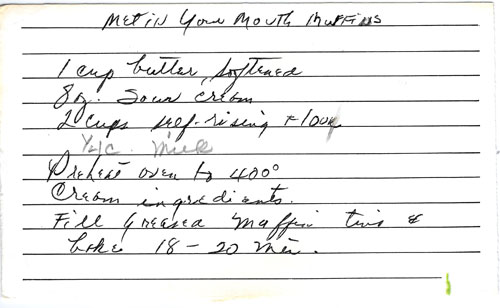 Melt in Your Mouth Muffins
1 cup butter, softened
8 oz. Sour cream
2 cups self-rising flour
1/4 c. Milk
Preheat oven to 400°
Cream ingredients.
Fill greased muffin tins &
bake 18 - 20 min.